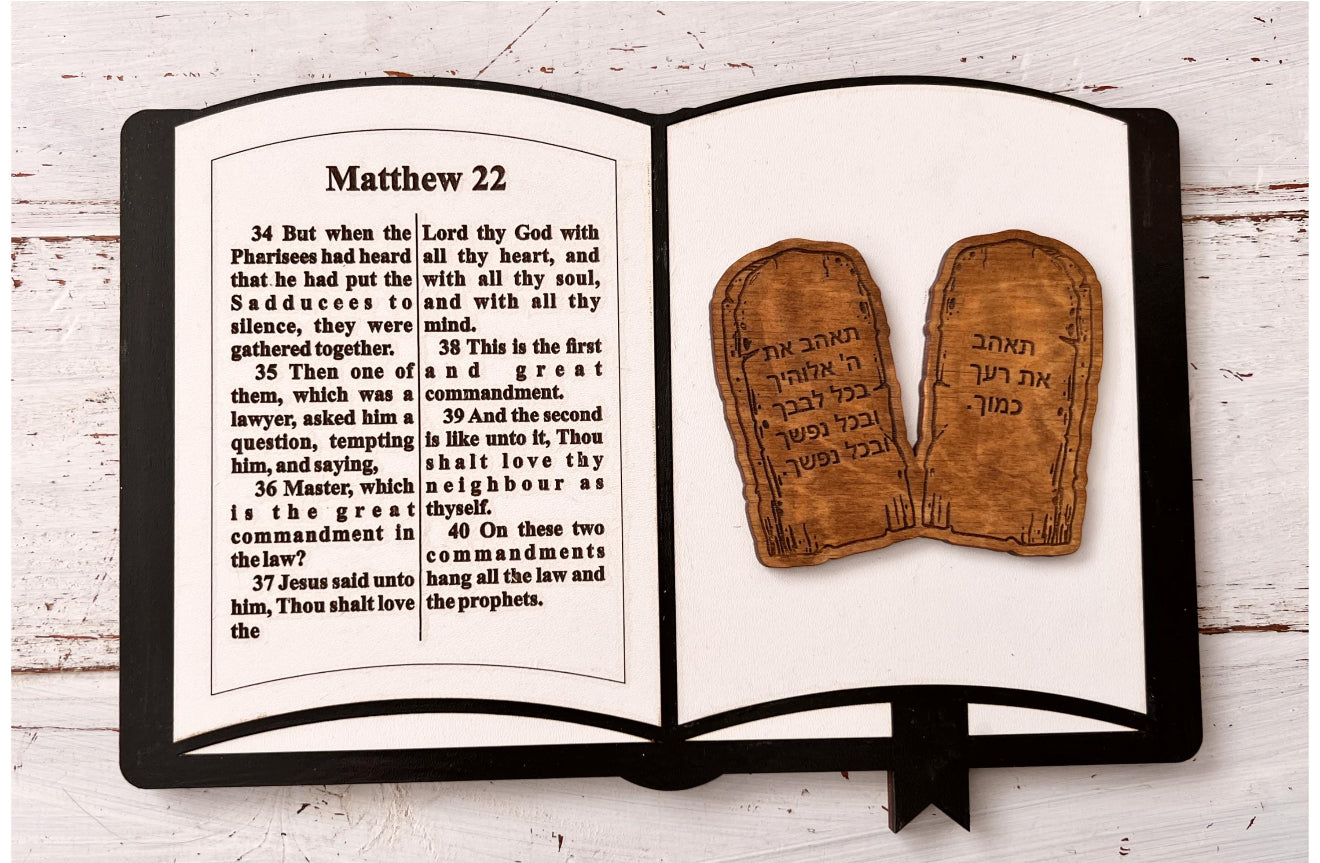 Matthew 22
34 But when the
Pharisees had heard
that he had put the
Sadducees to
silence, they were
gathered together.
35 Then one of
them, which was a
lawyer, asked him a
question, tempting
him, and saying,
36 Master, which
is the great
commandment in
the law?
37 Jesus said unto
him, Thou shalt love
the
Lord thy God with
all thy heart, and
with all thy soul,
and with all thy
mind.
38 This is the first
and great
commandment.
39 And the second
is like unto it, Thou
shalt love thy
neighbour as
thyself.
40 On these two
commandments
hang all the law and
the prophets.
תאהב את
ה' אלוהיך
בכל לבבך
ובכל נפשך
ובכל נפשך.
תאהב
את רעך
כמוך.